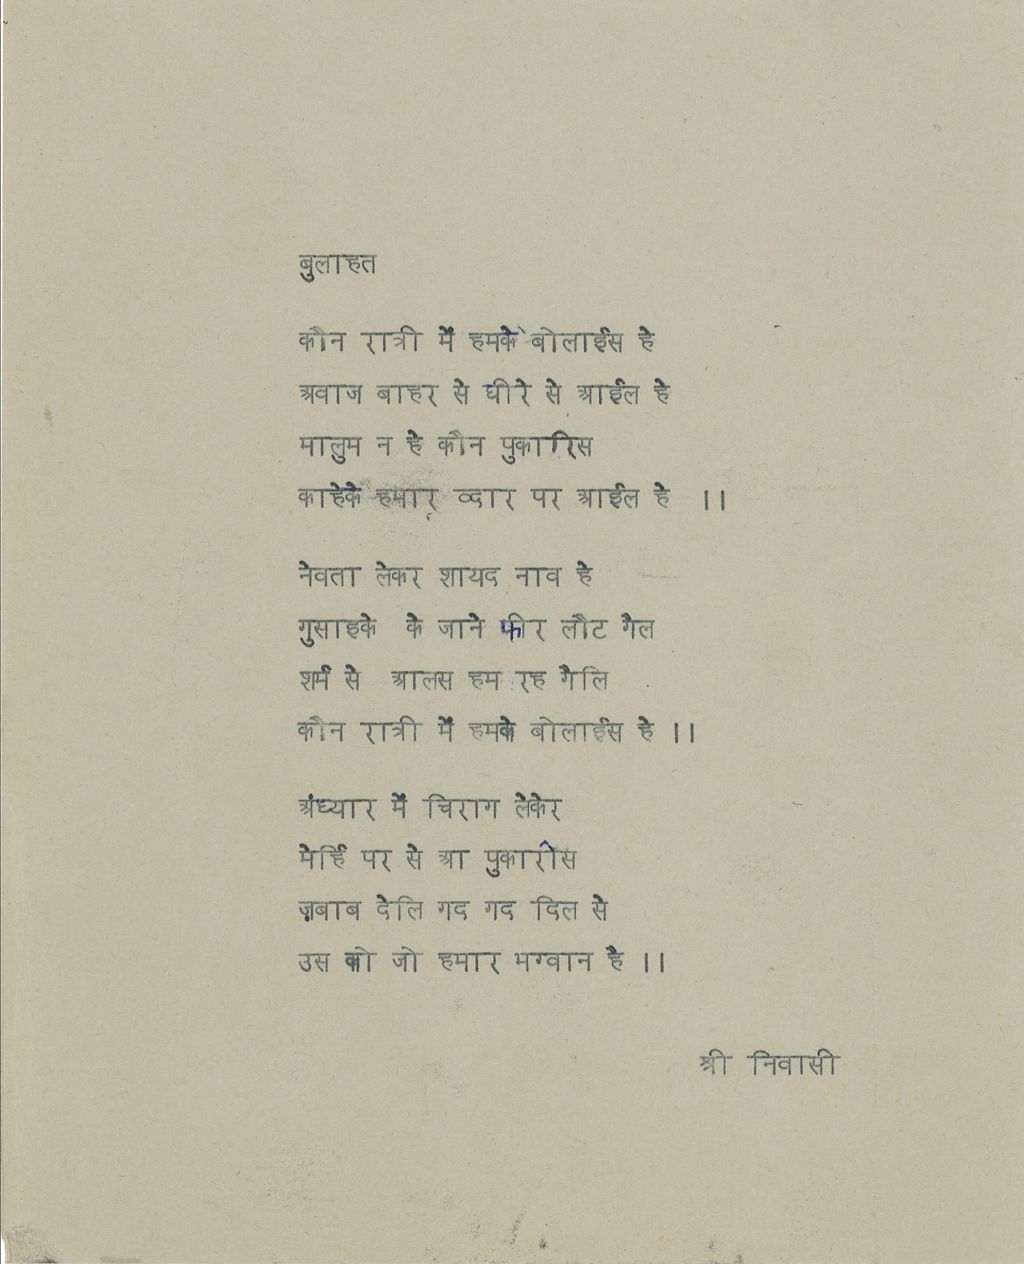 बुलाहत
कौन रात्री में हमके बोलाईस हे
अवाज बाहर से धीरे से आईल हे
मालुम न हे कौन पुकारिस
काहेके हमार व्दार पर आईल हे ।।
नेवता लेकर शायद नाव हे
गुसाइके के जाने फीर लौट गैल
शर्म से आलस हम रह गैलि
कौन रात्री में हमके बोलाईस हे ।।
अंध्यार में चिराग लेकेर
मेर्हि पर से आ पुकारीस
ज़बाब देलि गद गद दिल से
उस को जो हमार भग्वान है ।।
श्री निवासी